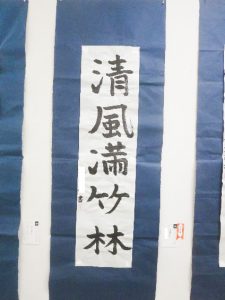 清風満竹林